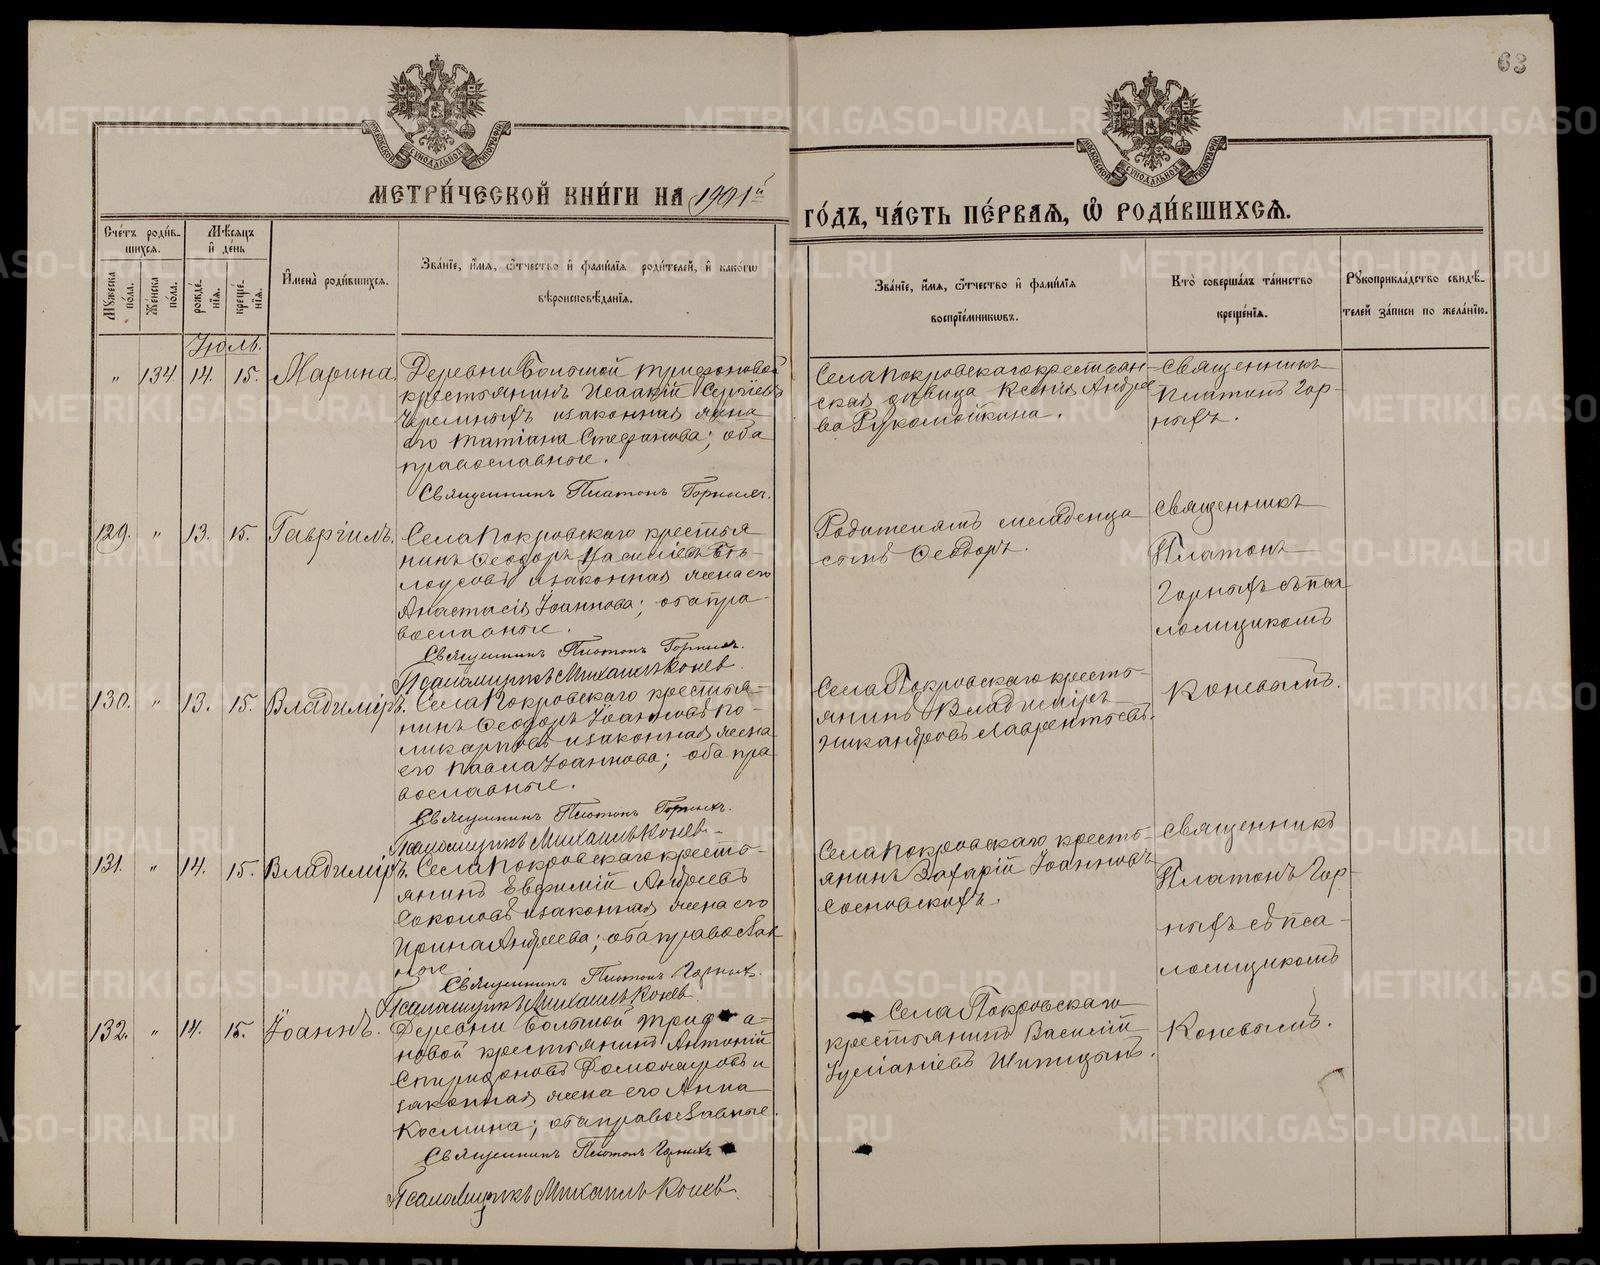 63
МОСКОВСКОЙ СѶНОДАЛЬНОЙ ТИПОГРАФІИ
МОСКОВСКОЙ СѶНОДАЛЬНОЙ ТИПОГРАФІИ
МЕТРИ́ЧЕСКОЙ КНИ́ГИ НА 1901й
ГО́ДЪ, ЧА́СТЬ ПЕ́РВАѦ, Ѽ РОДИ́ВШИХСѦ.
Сче́тъ роди́в-
шихсѧ.
Мꙋ́жеска по́ла.
Же́нска по́ла.
Мѣ́сѧцъ
и҆ де́нь
рожде́нїѧ.
креще́нїѧ.
И҆мена̀ роди́вшихсѧ.
Зва́нїе, и҆́мѧ, ѻ҆́тчество и҆ фами́лїѧ роди́телей, и҆ како́гѡ
вѣроисповѣ́данїѧ.
Зва́нїе, и҆́мѧ, ѻ҆́тчество и҆ фами́лїѧ
воспрїе́мникѡвъ.
Кто̀ соверша́лъ та́инство
креще́нїѧ.
Рꙋкоприкла́дство свидѣ́-
телей за́писи по жела́нїю.
Іюль.
„ 134 14. 15. Марина.
Деревни Большой Трифоновой
крестьянинъ Исаакій Сергіевъ
Черемныхъ и законная жена
его Татіана Стефанова; оба
православные.
Священникъ Платонъ Горныхъ.
Села Покровскаго крестьян-
ская дѣвица Ксенія Андрее
ва Рукомойкина.
Священникъ
Платонъ Гор-
ныхъ.
129. „ 13. 15. Гавріилъ.
Села Покровскаго крестья
нинъ Феодоръ Васильевъ Бѣ-
лоусовъ и законная жена его
Анастасія Іоаннова; оба пра-
вославные.
Священникъ Платонъ Горныхъ.
Псаломщикъ Михаилъ Коневъ.
Родителямъ младенца
сынъ Феодоръ.
Священникъ
Платонъ
Горныхъ съ пса
ломщикомъ
Коневымъ.
130. „ 13. 15. Владиміръ.
Села Покровскаго крестья-
нинъ Феодоръ Іоанновъ По-
ликарповъ и законная жена
его Павла Іоаннова; оба пра
вославные.
Священникъ Платонъ Горныхъ.
Псаломщикъ Михаилъ Коневъ.
Села Покровскаго кресть-
янинъ Владиміръ
Никандровъ Лаврентьевъ.
131. „ 14. 15. Владиміръ.
Села Покровскаго кресть-
янинъ Евфимій Андреевъ
Соколовъ и законная жена его
Ирина Андреева; оба православ
ные
Священникъ Платонъ Горныхъ.
Псаломщикъ Михаилъ Коневъ.
Села Покровскаго кресть-
янинъ Захарій Іоанновъ
Сосновскихъ.
Священникъ
Платонъ Гор-
ныхъ съ пса-
ломщикомъ
Коневымъ.
132. „ 14. 15. Іоаннъ.
Деревни Большой Трифо-
новой крестьянинъ Антоній
Спиридоновъ Домочаровъ и
законная жена его Анна
Космина; оба православные.
Священникъ Платонъ Горныхъ
Псаломщикъ Михаилъ Коневъ.
Села Покровскаго
крестьянинъ Василій
Іуліаніевъ Шипицынъ.
METRIKI.GASO-URAL.RU